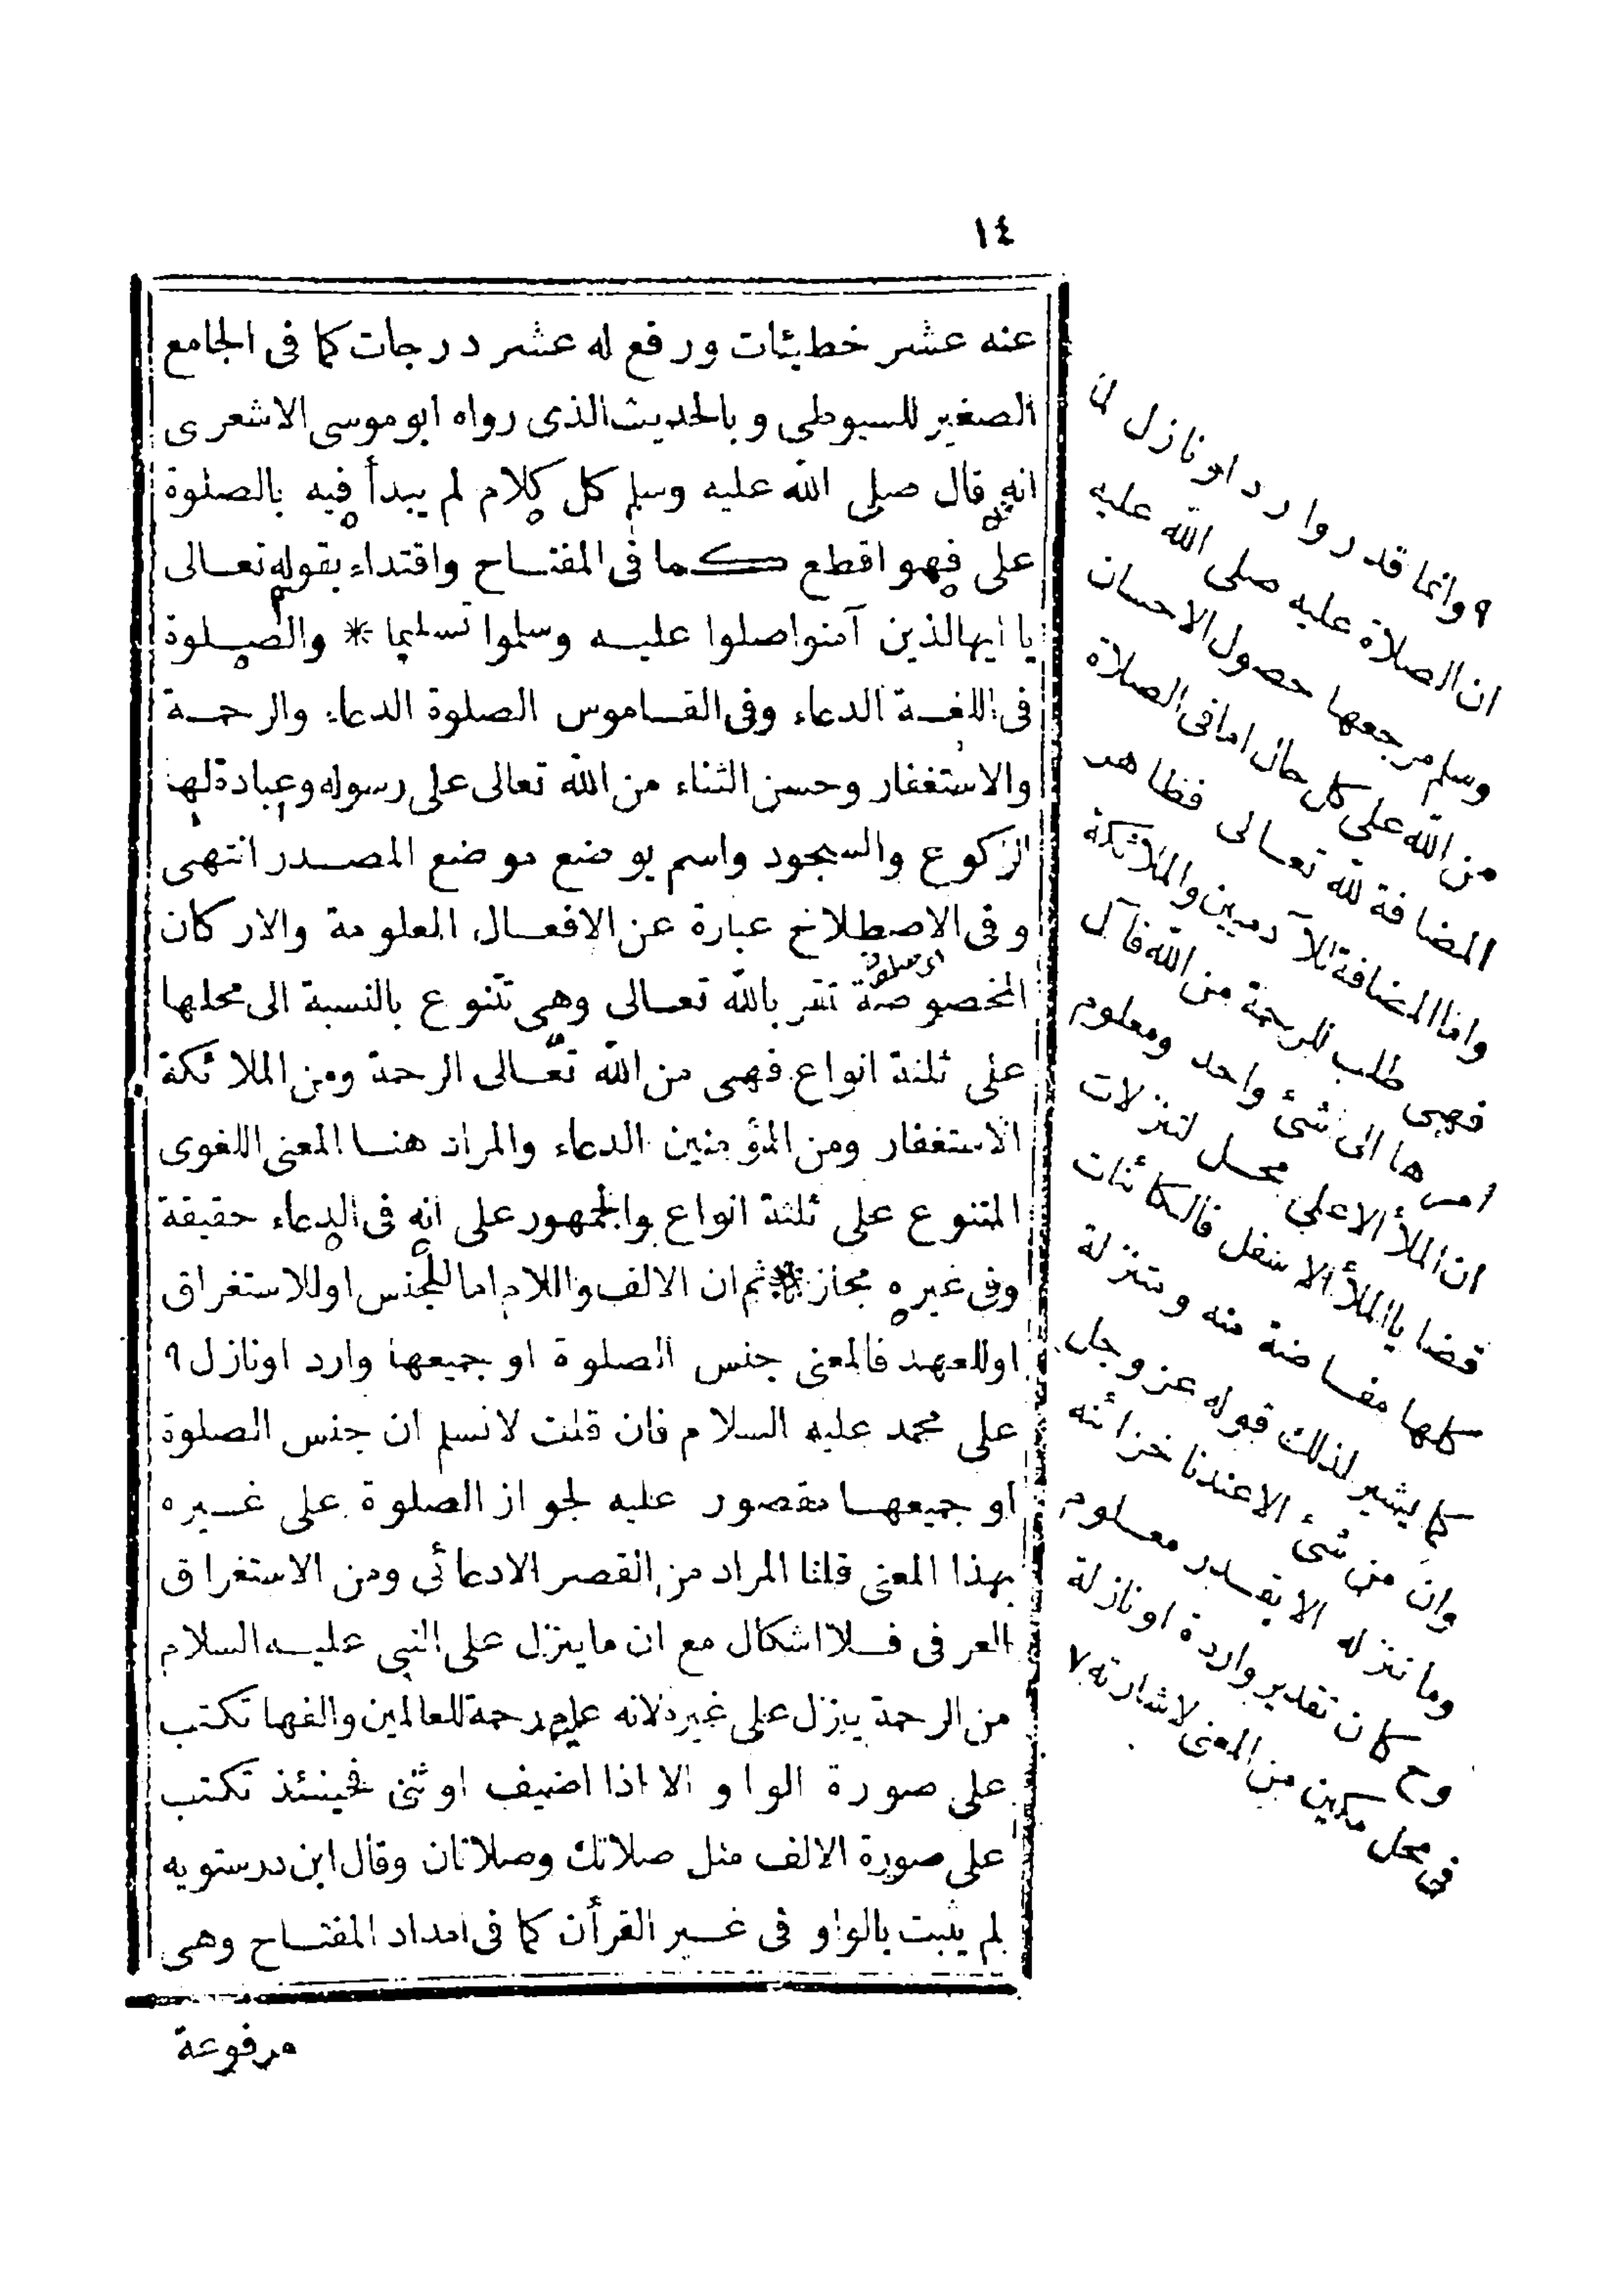 ١٤
عنه عشر خطيئات ورفع له عشر درجات كما فى الجامع
الصغير للسيوطى وبالحديث الذى رواه ابو موسى الاشعرى
انه قال صلى الله عليه وسلم كل كلام لم يبدأ فيه بالصلوة
على فهو اقطع كما فى المفتاح واقتداء بقوله تعالى
يا ايها الذين آمنوا صلوا عليه وسلموا تسليما * والصلوة
فى اللغة الدعاء وفى القاموس الصلوة الدعاء والرحمة
والاستغفار وحسن الثناء من الله تعالى على رسوله وعبادة لها
الركوع والسجود واسم يوضع موضع المصدر انتهى
وفى الاصطلاح عبارة عن الافعال المعلومة والاركان
المخصوصة تقر بالله تعالى وهى تتنوع بالنسبة الى محلها
على ثلثة انواع فهى من الله تعالى الرحمة ومن الملائكة
الاستغفار ومن المؤمنين الدعاء والمراد هنا المعنى اللغوى
المتنوع على ثلثة انواع والجمهور على انه فى الدعاء حقيقة
وفى غيره مجاز * ثم ان الالف واللام اما للجنس او للاستغراق
او للعهد فالمعنى جنس الصلوة او جميعها وارد او نازل ٩
على محمد عليه السلام فان قلت لا نسلم ان جنس الصلوة
او جميعها مقصور عليه لجواز الصلوة على غيره
بهذا المعنى قلنا المراد من القصر الادعائى ومن الاستغراق
العرفى فلا اشكال مع ان ما ينزل على النبى عليه السلام
من الرحمة ينزل على غيره لانه عليم رحمة للعالمين والفها تكتب
على صورة الواو الا اذا اضيف او ثنى فحينئذ تكتب
على صورة الالف مثل صلاتك وصلاتان وقال ابن درستويه
لم يثبت بالواو فى غير القرأن كما فى امداد المفتاح وهى
مرفوعة
٩ وانما قدر وارد او نازل لان
ان الصلاة عليه صلى الله عليه
وسلم مرجعها حصول الاحسان
من الله على كل حال اما فى الصلاة
المضافة لله تعالى فظاهر
واما المضافة للآدميين والملائكة
فهى طلب للرحمة من الله فآل
امرها الى شئ واحد ومعلوم
ان الملأ الاعلى محل لتنزلات
قضايا الملأ الاسفل فالكائنات
كلها مفاضة منه ومتنزلة
كما يشير لذلك قوله عز وجل
وان من شئ الا عندنا خزائنه
وما ننزله الا بقدر معلوم
وح كان تقدير واردة او نازلة
فى محل مكين من المعنى لاشارته ٧